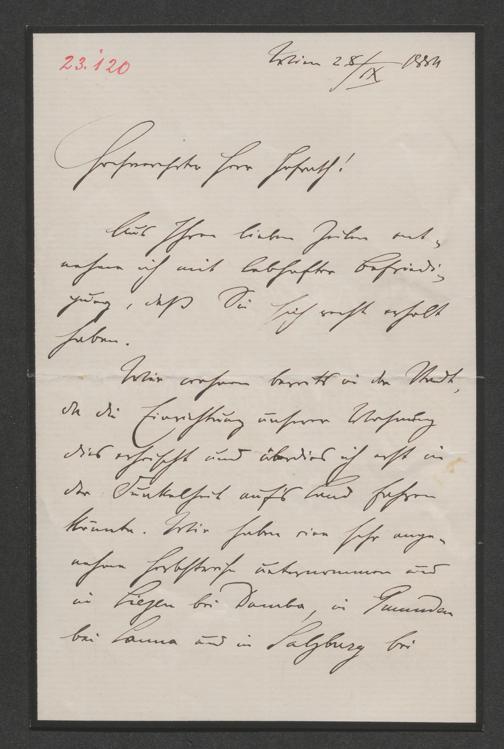 23.120
Wien 28/IX 1884
Hochverehrter Herr Hofrath!
Aus Ihren lieben Zeilen ent-
nehme ich mit lebhafter Befriedi-
gung, daß Sie sich recht erholt
haben.
Wir wohnen bereits in der Stadt,
da die Einrichtung unserer Wohnung
dies erheischt und überdies ich erst in
der Dunkelheit aufs Land fahren
könnte. Wir haben eine sehr ange-
nehme Herbstreise unternommen und
in Liezen bei Dumba, in Gmunden
bei Lanna und in Salzburg bei